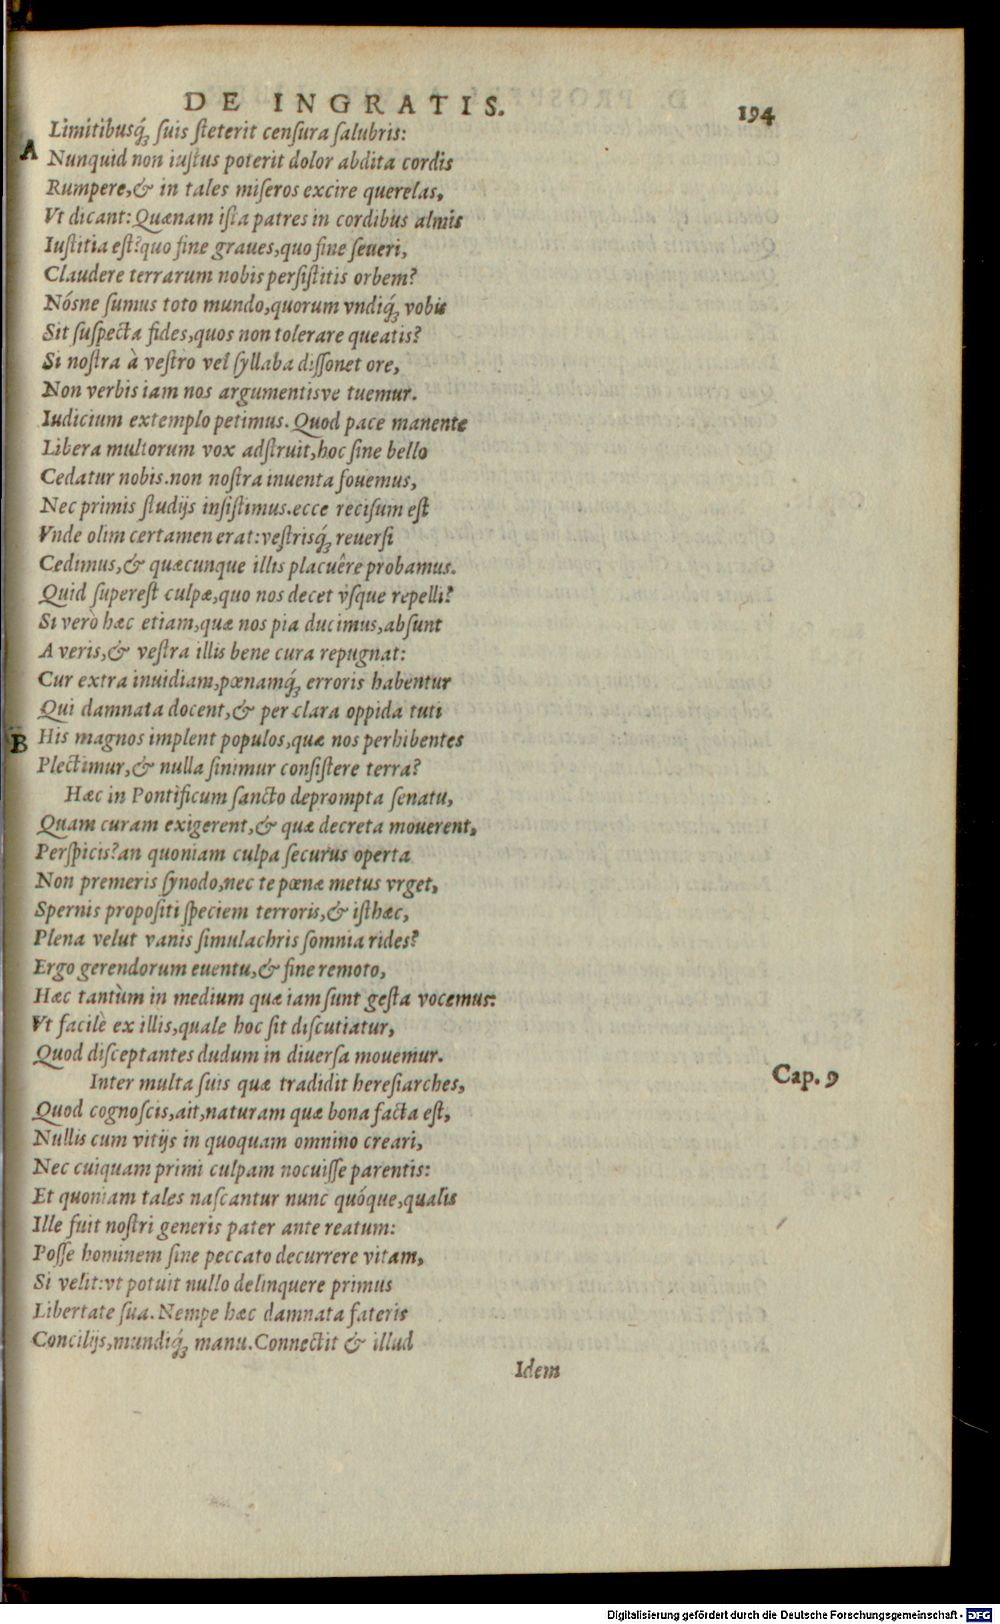 DE INGRATIS. 194
Limitibusq́; suis steterit censura salubris:
A
Nunquid non iustus poterit dolor abdita cordis
Rumpere,& in tales miseros excire querelas,
Vt dicant: Quænam ista patres in cordibus almis
Iustitia est? quo fine graues, quo fine seueri,
Claudere terrarum nobis persistitis orbem?
Nósne sumus toto mundo, quorum vndiq́; vobis
Sit suspecta fides, quos non tolerare queatis?
Si nostra à vestro vel syllaba dissonet ore,
Non verbis iam nos argumentisve tuemur.
Iudicium extemplo petimus. Quod pace manente
Libera multorum vox adstruit, hoc sine bello
Cedatur nobis. non nostra inuenta fouemus,
Nec primis studijs insistimus. ecce recisum est
Vnde olim certamen erat: vestrisq́; reuersi
Cedimus,& quæcunque illis placuêre probamus.
Quid superest culpæ, quo nos decet vsque repelli?
Si verò hæc etiam, quæ nos pia ducimus, absunt
A veris,& vestra illis bene cura repugnat:
Cur extra inuidiam, pœnamq́; erroris habentur
Qui damnata docent,& per clara oppida tuti
B
His magnos implent populos, quæ nos perhibentes
Plectimur,& nulla sinimur consistere terra?
Hæc in Pontificum sancto deprompta senatu,
Quam curam exigerent,& quæ decreta mouerent,
Perspicis? an quoniam culpa securus operta
Non premeris synodo, nec te pœnæ metus vrget,
Spernis propositi speciem terroris,& isthæc,
Plena velut vanis simulachris somnia rides?
Ergo gerendorum euentu,& fine remoto,
Hæc tantùm in medium quæ iam sunt gesta vocemus:
Vt facilè ex illis, quale hoc sit discutiatur,
Quod disceptantes dudum in diuersa mouemur.
Inter multa suis quæ tradidit heresiarches,
Cap. 9
Quod cognoscis, ait, naturam quæ bona facta est,
Nullis cum vitijs in quoquam omnino creari,
Nec cuiquam primi culpam nocuisse parentis:
Et quoniam tales nascantur nunc quóque, qualis
Ille fuit nostri generis pater ante reatum:
Posse hominem sine peccato decurrere vitam,
Si velit: vt potuit nullo delinquere primus
Libertate sua. Nempe hæc damnata fateris
Concilijs, mundiq́; manu. Connectit & illud
Idem
Digitalisierung gefördert durch die Deutsche Forschungsgemeinschaft - DFG